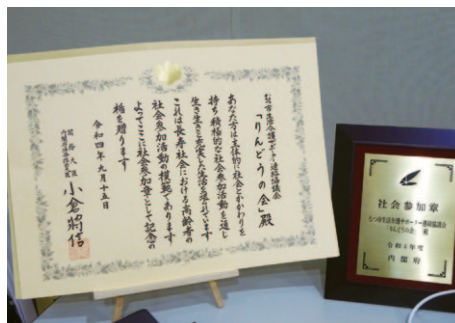 むつ市生活介護サポーター連絡協議会
「りんどうの会」殿
あなた方は主体的に社会とかかわりを
持ち積極的な社会参加活動を通じ
生き生きと充実した生活を送られています
これは長寿社会における高齢者の
社会参加活動の模範であります
よってここに社会参加章として記念の
楯を贈ります
令和四年九月十五日
国務大臣
内閣府特命担当大臣
小倉將信
社会参加章
むつ市生活介護サポーター連絡協議会
「りんどうの会」殿
令和4年度
内閣府